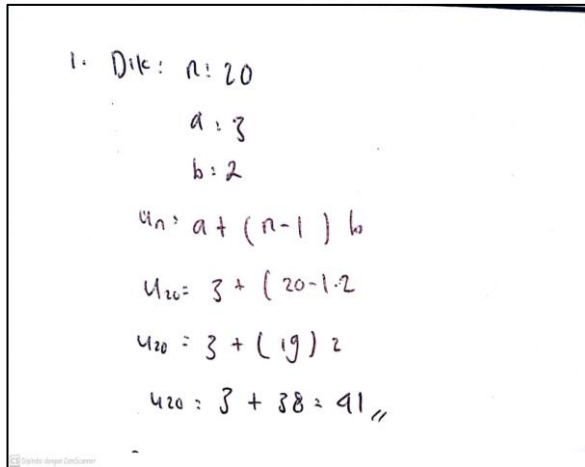 1. Dik: n: 20
a: 3
b: 2
Un: a + (n-1) b
U20= 3 + (20-1.2
U20 = 3 + (19) 2
U20 = 3 + 38 = 41 //
CS Dipindai dengan CamScanner